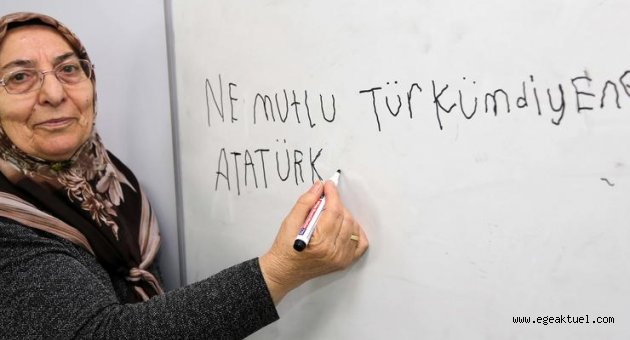 NE mUTLU TürKÜmdiyEnE
ATATÜRK
www.egeaktuel.com